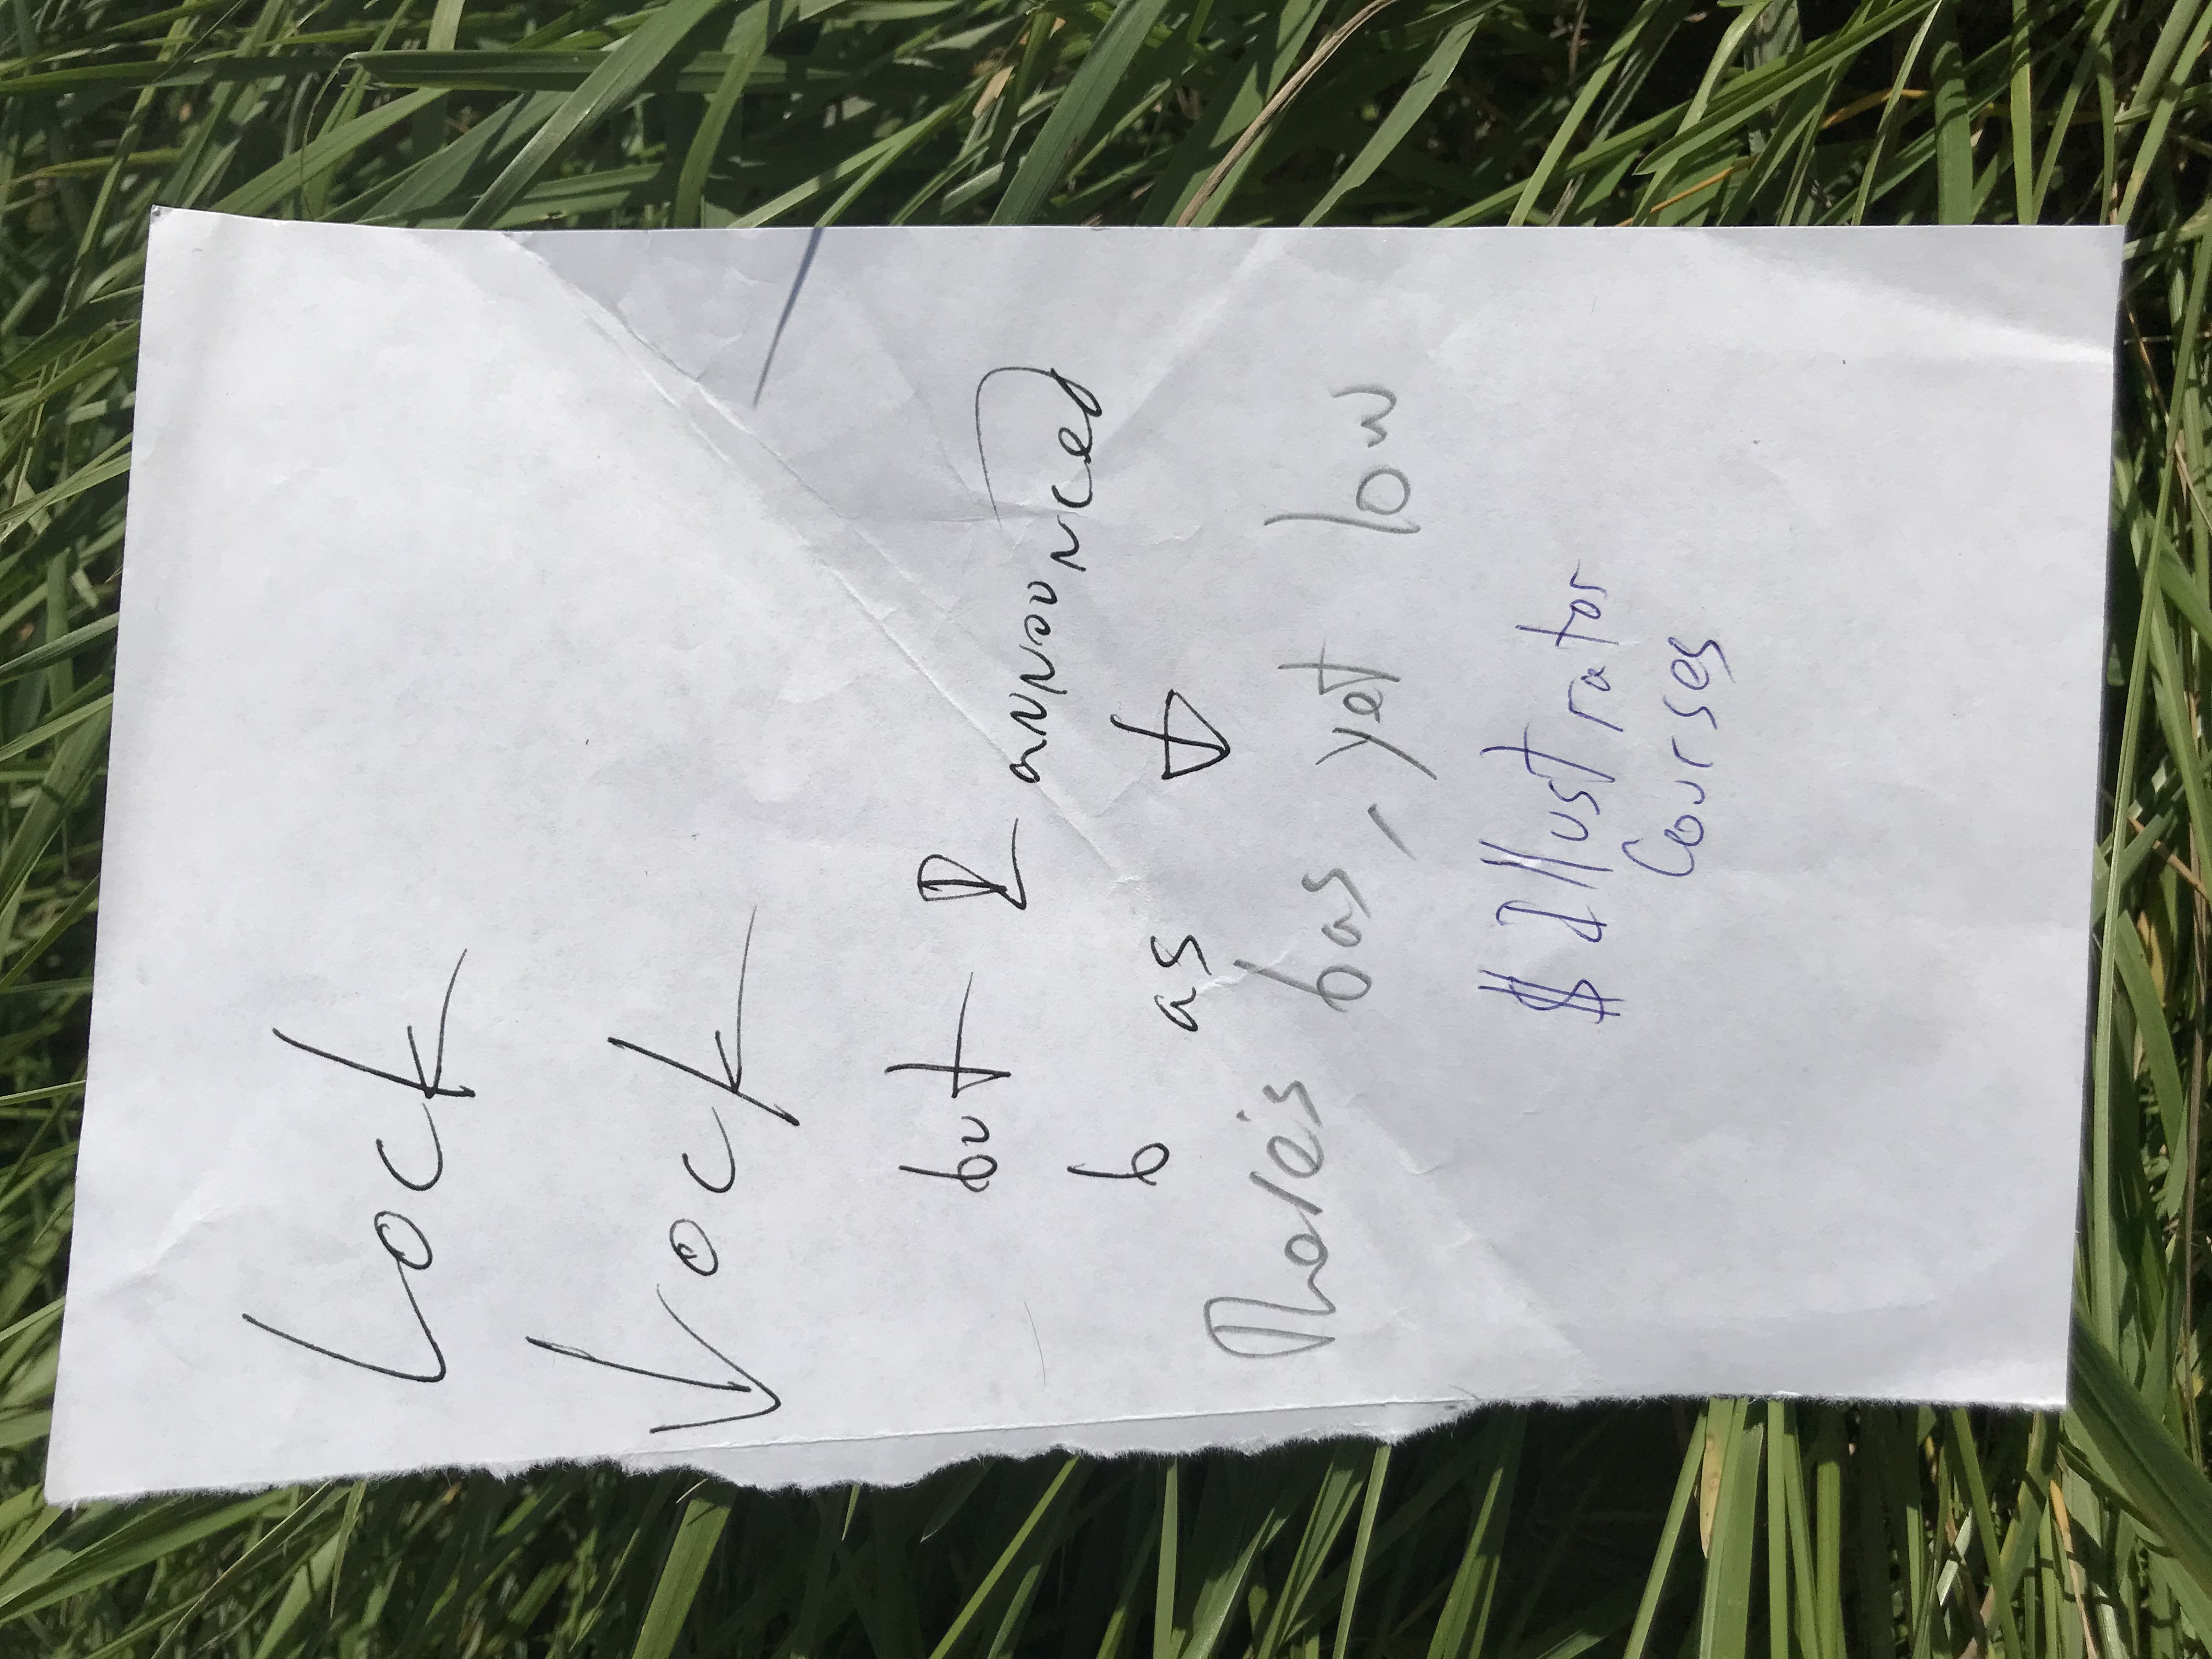 Lock
↓ock
but I announced
b as ↓
There's bas, yet low
$ Illustrator
Courses